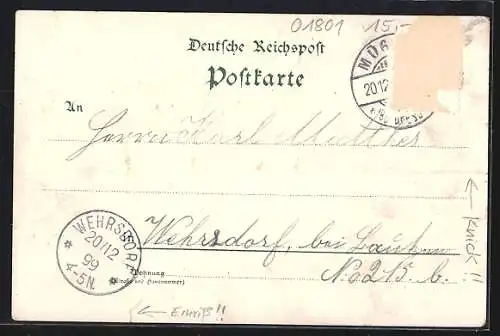 01801 15,-
Deutsche Reichspost
Postkarte
MÜG
20.12
An
Herrn Karl
WEHRSDORF
20/12
99
4-5N.
Wehrsdorf, bei
Wohnung
(Straße und Hausnummer)
No 215 b.
← Knick!!
← Einriß!!